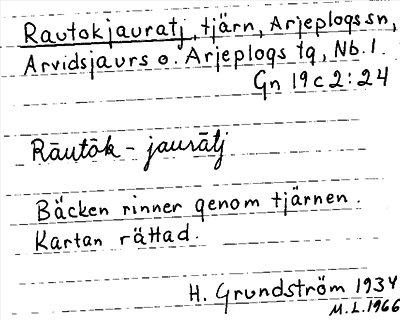 Rautokjauratj, tjärn, Arjeplogs sn,
Arvidsjaurs o. Arjeplogs tg, Nb. l.
Gn 19c2:24
Rāutōk-jaurātj
Bäcken rinner genom tjärnen.
Kartan rättad.
H. Grundström 1934
M.L. 1966